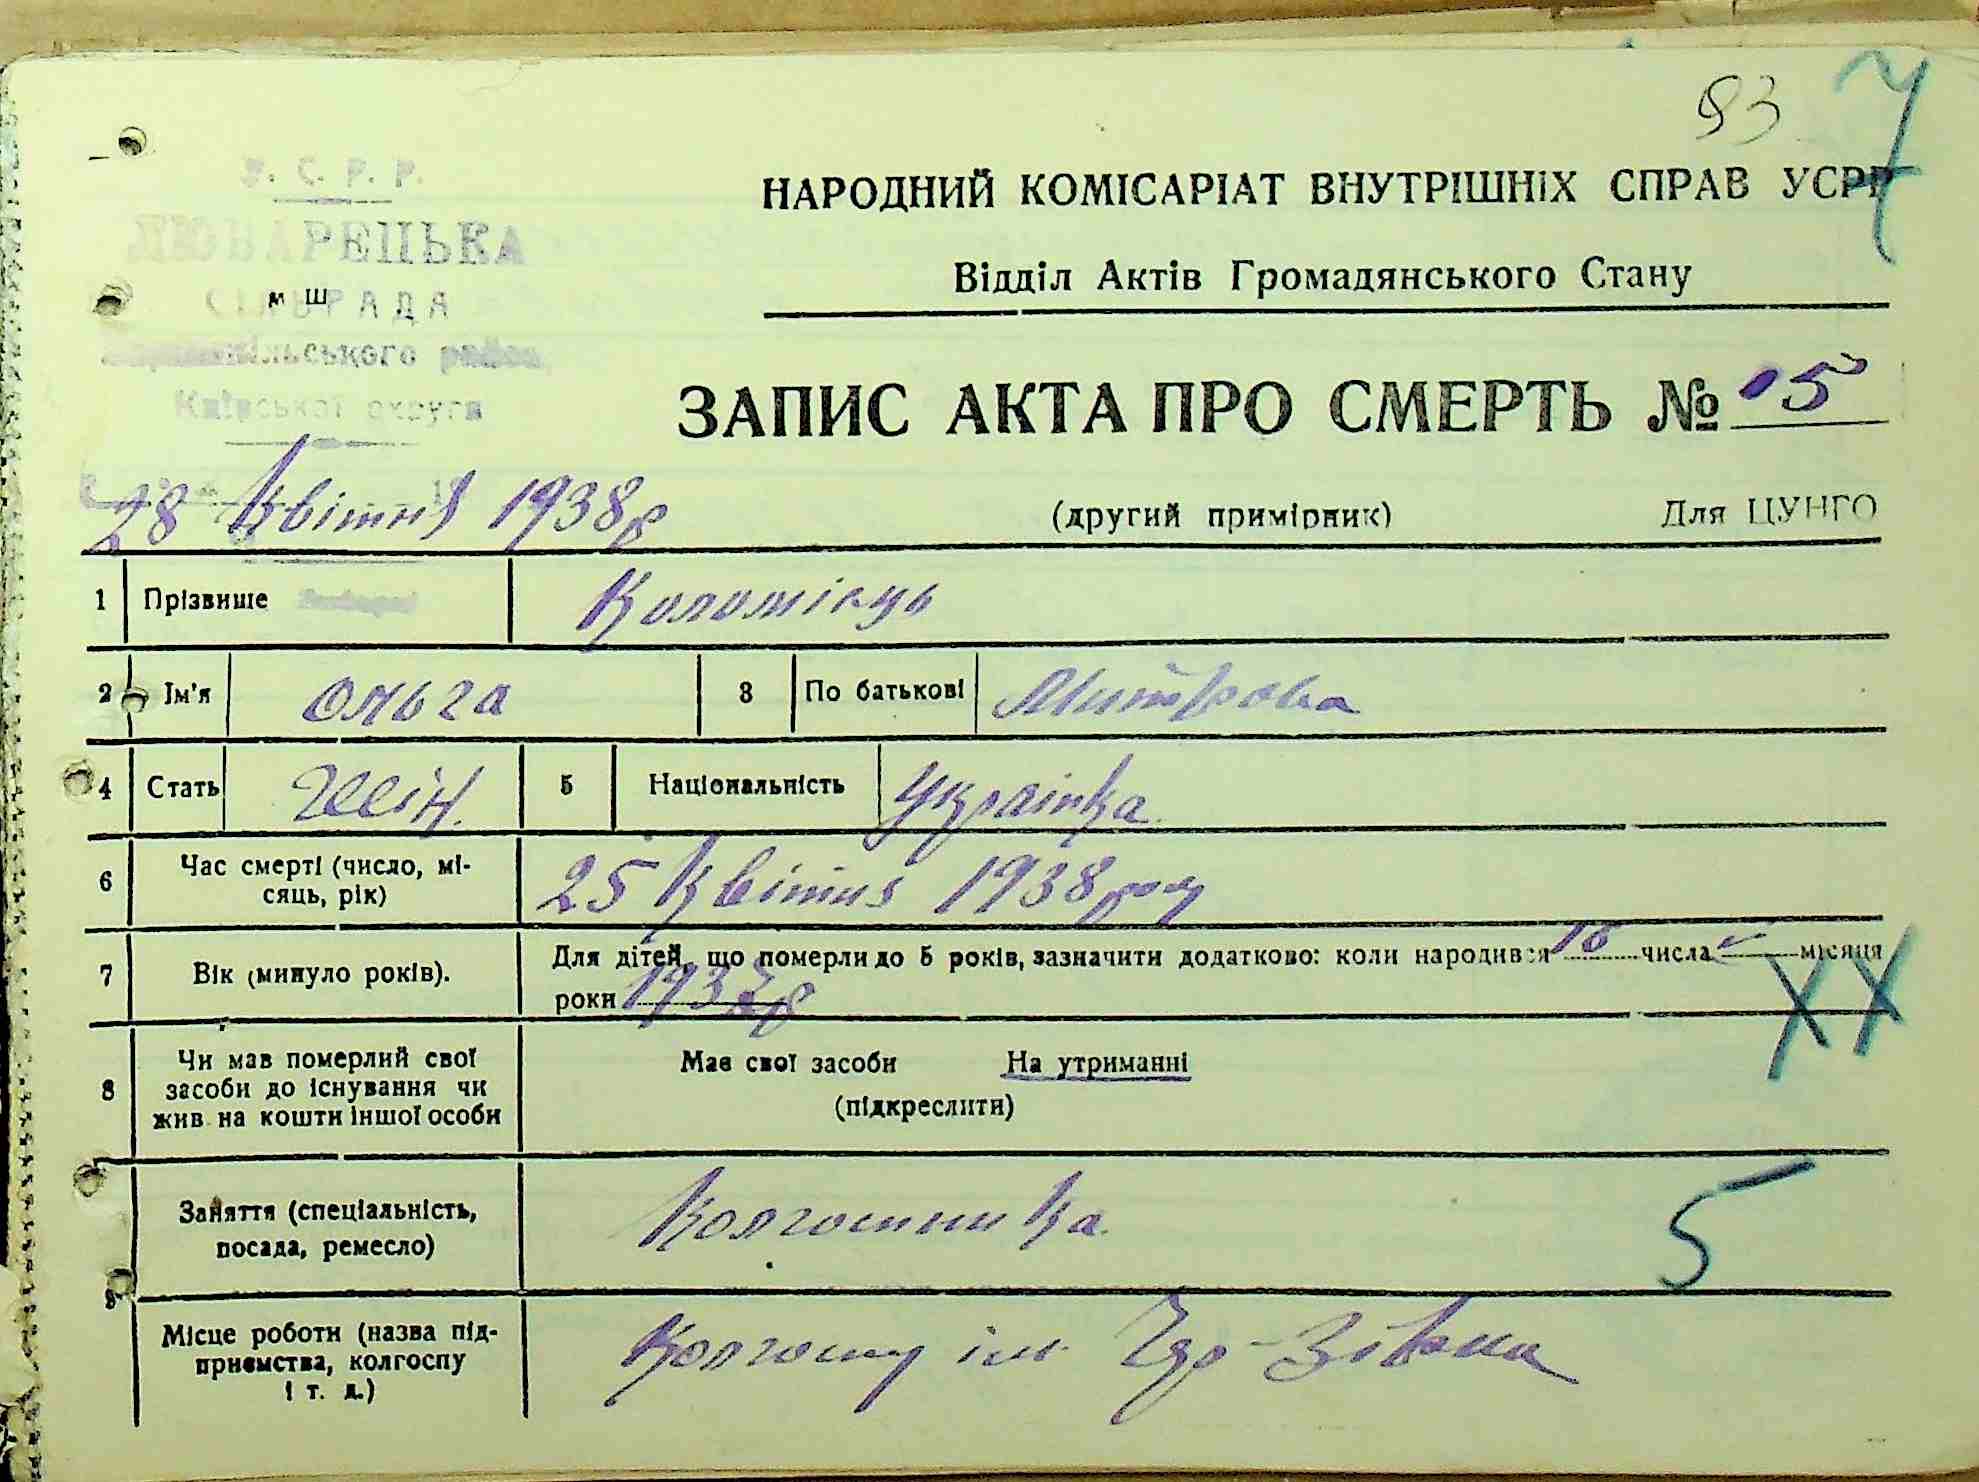 93 7
У. С. Р. Р.
ЛЮБАРЕЦЬКА
СІЛЬРАДА
м Ш
ільського
Київської округи
НАРОДНИЙ КОМІСАРІАТ ВНУТРІШНІХ СПРАВ УСРР
Відділ Актів Громадянського Стану
ЗАПИС АКТА ПРО СМЕРТЬ № 15
28 квітня 1938 р
(другий примірник) Для ЦУНГО
1 Прізвише Коломієць
2 Ім'я Ольга 3 По батькові Митрова
4 Стать Жін. 5 Національність Українка
6 Час смерті (число, мі-
сяць, рік) 25 квітня 1938 року
7 Вік (минуло років). Для дітей, що померли до 5 років, зазначити додатково: коли народився 16 числа V місяця
роки 1937 р
8 Чи мав померлий свої
засоби до існування чи
жив на кошти іншої особи
Має свої засоби На утриманні
(підкреслити)
XX
9 Заняття (спеціальність,
посада, ремесло) Колгоспника 5
Місце роботи (назва під-
приємства, колгоспу
і т. д.) Колгоспу ім.